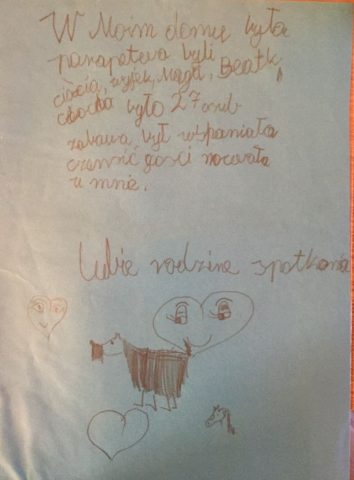 W Moim domu była
parapetewa byli
ciocia, wujek, Magda, Beatk,
było 27 osub
zabawa był wspaniała
czenść gości nocowała
u mnie.
Lubie rodzine spotkania